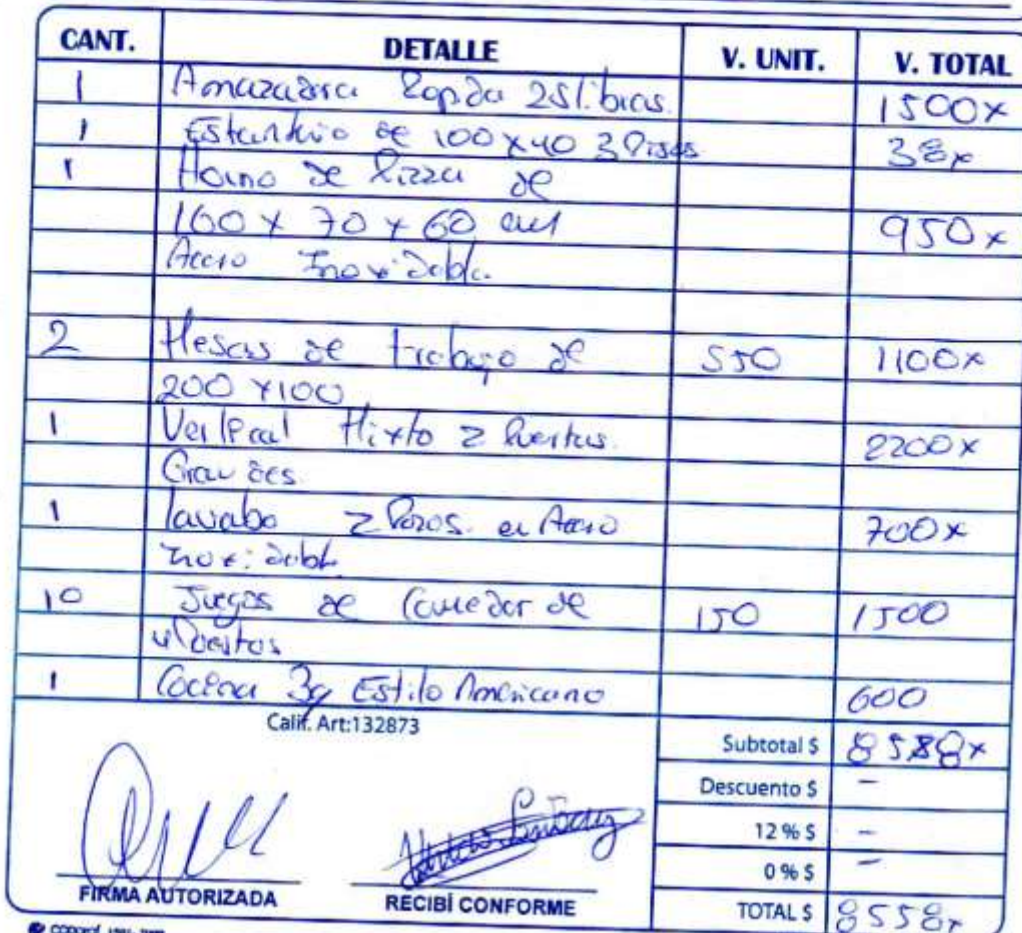 CANT. DETALLE V. UNIT. V. TOTAL
1 Amazadora Rapida 25 libras. 1500x
1 Estanterio de 100x40 3 Pisos 38x
1 Horno de Pizza de
160 x 70 x 60 cm 950x
Acero Inoxidable.
2 Mesas de trabajo de 550 1100x
200 x100
1 Mixto 2 Puertas. 2200x
Grandes.
1 lavabo 2 Pozos. en Acero 700x
Inoxidable
10 Juegos de Comedor de 150 1500
4 Puestos
1 Cocina 3q Estilo Americano 600
Calif. Art:132873
Subtotal $ 8588x
Descuento $ -
12 % $ -
0 % $ -
FIRMA AUTORIZADA RECIBÍ CONFORME TOTAL $ 8558x